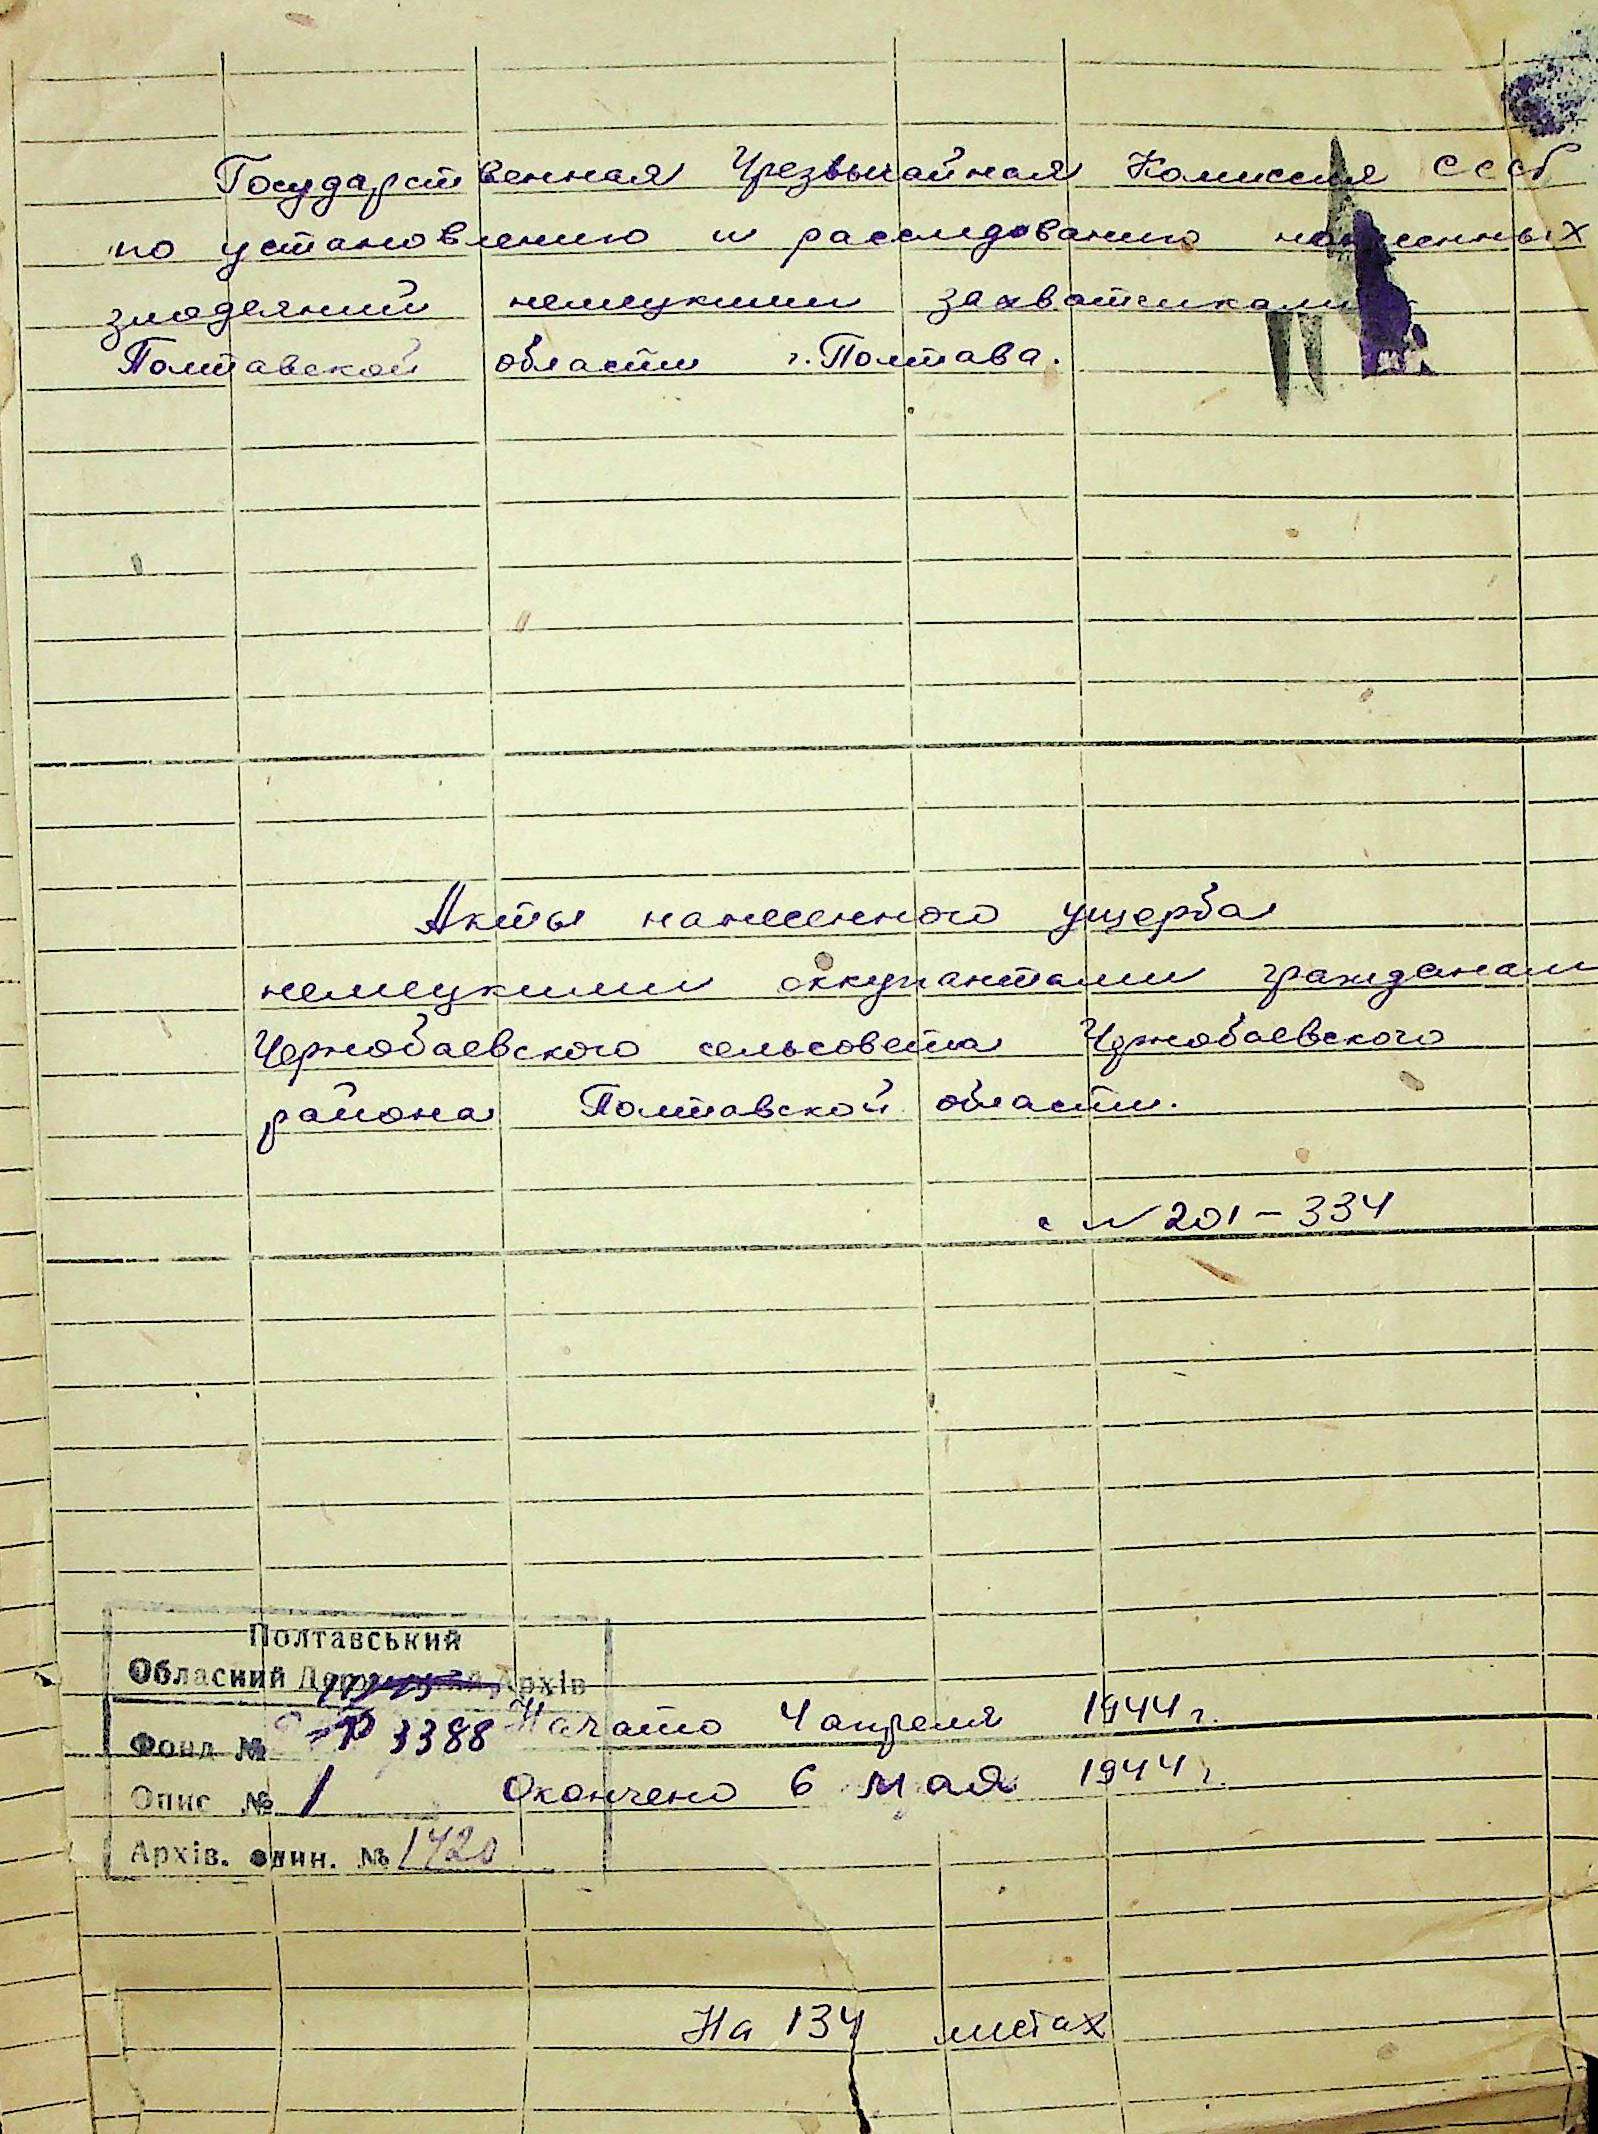 Государственная Чрезвычайная Комиссия СССР
по установлению и расследованию нанесенных
злодеяний немецкими захватчиками
Полтавской области г. Полтава.
Акты нанесенного ущерба
немецкими оккупантами гражданам
Чернобаевского сельсовета Чернобаевского
района Полтавской области.
с № 201 – 334
Полтавський
Обласний Державний Архів
Фонд № Р 3388
Начато 4 апреля 1944 г.
Опис № 1
Окончено 6 мая 1944 г.
Архів. один. № 1420
На 134 листах